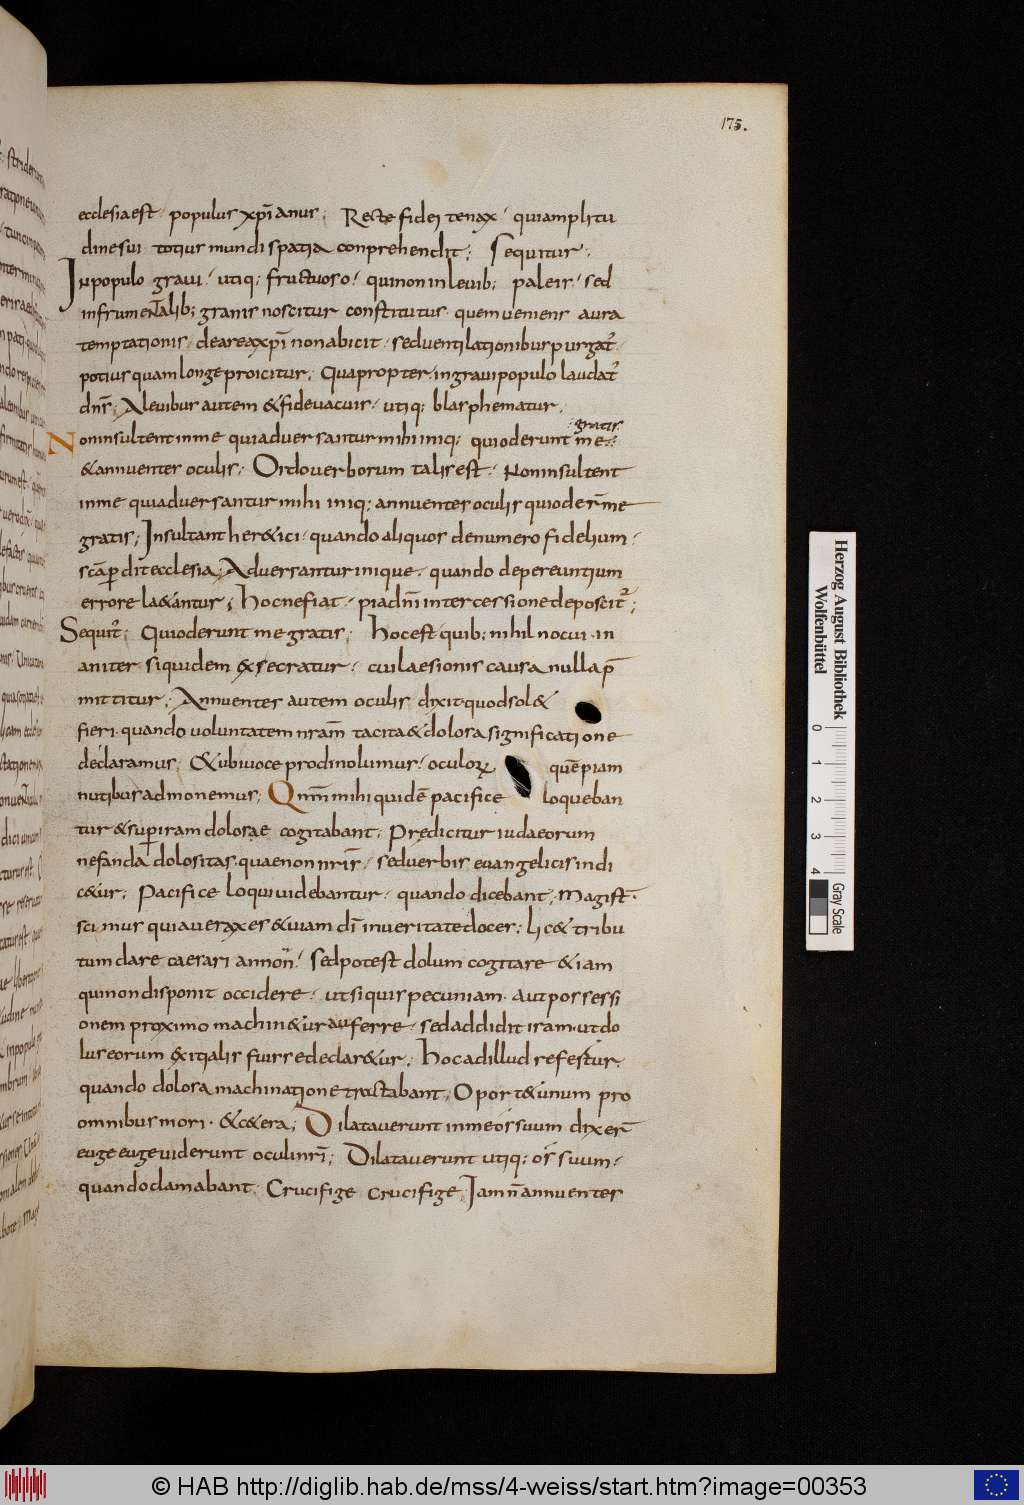 175.
ecclesia est· populus xp̄ianus; Recte fidei tenax· quia mplitu
dine sui totius mundi spatia conprehendit; Sequitur·
In populo graui· utiq; fructuoso· qui non in leuib; paleis· sed
in frumentalib; granis noscitur constitutus quem ueniens aura
temptationis· de area xp̄i non abicit· sed uentilationibus purgat·
potius quam longe proicitur; Quapropter· in graui populo laudat
dn̄s; A leuibus autem & fide uacuis· utiq; blasphematur·
gratis
Non insultent in me qui aduersantur mihi iniq; qui oderunt me·
& annuenter oculis; Ordo uerborum talis est· Non insultent
in me qui aduersantur mihi iniq; annuenter oculis qui oder̄ me
gratis; Insultant her&ici· quando aliquos de numero fidelium·
sc̄a perdit ecclesia; Aduersantur inique· quando de pereuntium
errore la&antur; Hoc ne fiat· pia dn̄i intercessione deposcit;
Sequit̄; Qui oderunt me gratis; Hoc est quib; nihil nocui· in
aniter siquidem exsecratur· cui laesionis causa nulla p̄
mittitur; Annuentes autem oculis dixit quod sol&
fieri· quando uoluntatem nr̄am tacita & dolosa significatione
declaramus; & ubi uoce prodi nolumus· oculorꝝ quēpiam
nutibus admonemus; Qm̄ mihi quidē pacifice loqueban
tur & sup iram dolosae cogitabant; Prędicitur iudaeorum
nefanda dolositas· quae non nr̄is· sed uerbis euangelicis indi
c&ur; Pacifice loqui uidebantur· quando dicebant; Magist·
scimus quia uerax es & uiam dī in ueritate doces; lic& tribu
tum dare caesari an non; Sed potest dolum cogitare & iam
qui non disponit occidere· ut si quis pecuniam· aut possessi
onem proximo machin&ur auferre· sed addidit iram· ut do
lus eorum exitialis fuisse declar&ur; Hoc ad illud refertur·
quando dolosa machinatione tractabant; Oport& unum pro
omnibus mori· & c&era; Dilatauerunt in me os suum dixer̄
euge euge uiderunt oculi nr̄i; Dilatauerunt utiq; os suum·
quando clamabant· Crucifige crucifige; Iam n̄ annuentes
Herzog August Bibliothek
Wolfenbüttel
0 1 2 3 4
Gray Scale
© HAB http://diglib.hab.de/mss/4-weiss/start.htm?image=00353